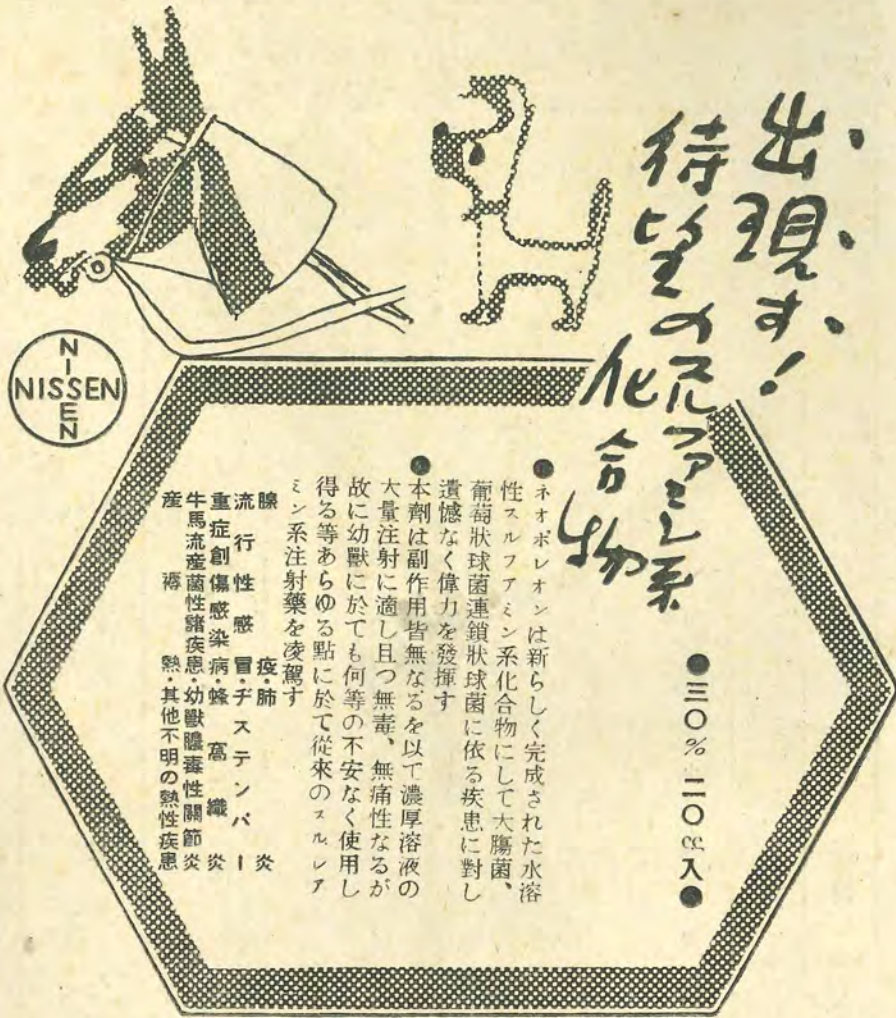 出現す!
待望のスルファミン系
化合物
●三〇% 二〇cc入●
●ネオポレオンは新らしく完成された水溶
性スルファミン系化合物にして大膓菌、
葡萄狀球菌連鎖狀球菌に依る疾患に對し
遺憾なく偉力を發揮す
●本劑は副作用皆無なるを以て濃厚溶液の
大量注射に適し且つ無毒、無痛性なるが
故に幼獸に於ても何等の不安なく使用し
得る等あらゆる點に於て從來のスルレア
ミン系注射藥を凌駕す
腺疫・肺炎
流行性感冒・ヂステンバー
重症創傷感染病・蜂窩織炎
牛馬流産菌性諸疾患・幼獸膿毒性關節炎
産褥熱・其他不明の熱性疾患
NISSEN
NISSEN